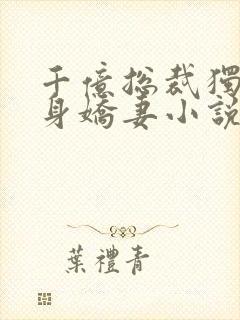 千億總裁獨
身嬌妻小說
葉禮青